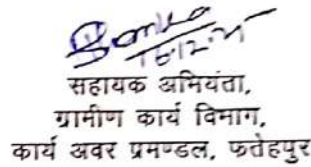 16.12.21
सहायक अभियंता,
ग्रामीण कार्य विभाग,
कार्य अवर प्रमण्डल, फतेहपुर